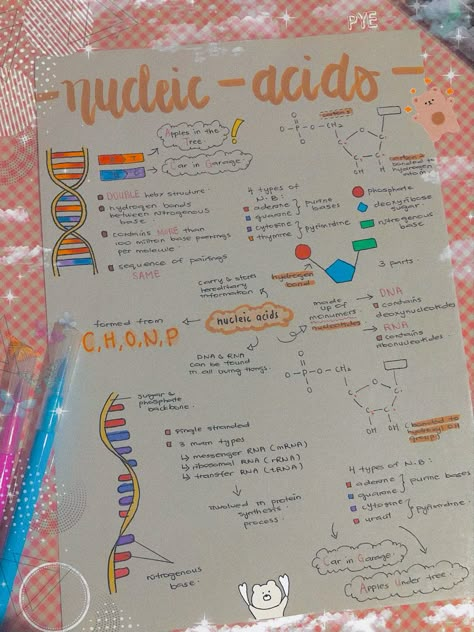 PYE
nucleic-acids
Apples in the
Tree
Car in Garage
A T
DOUBLE helix structure
hydrogen bonds
between nitrogenous
base
contains MORE than
100 million base pairings
per molecule
sequence of pairings
SAME
4 types of
N.B:
adenine
guanine
purine
bases
cytosine
thymine
O-P-O-CH2
bonded to
hydrogen
phosphate
deoxyribose
sugar
nitrogenous
base
3 parts
hydrogen
bond
carry & stores
hereditary
information
nucleic acids
formed from
C,H,O,N,P
made
up of
monomers
nucleotides
DNA
contains
deoxynucleotides
RNA
contains
ribonucleotides
DNA & RNA
can be found
in all living things.
O-P-O-CH2
OH OH
bonded to
sugar &
phosphate
backbone
single stranded
3 main types
messenger RNA (mRNA)
ribosomal RNA (rRNA)
transfer RNA (tRNA)
involved in protein
synthesis
process.
nitrogenous
base
4 types of N.B:
adenine
guanine
purine bases
cytosine
uracil
Car in Garage
Apples Under tree